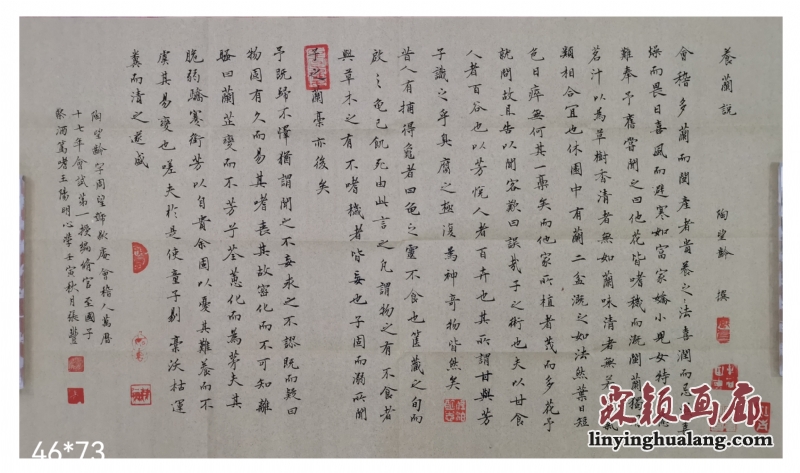 養蘭說
陶望齡 撰
會稽多蘭而閩產者貴養之之法喜潤而忌
燥而畏日喜風而避寒如富家嬌小兒女特
難奉予舊嘗聞之曰他花皆嗜穢而溉閩蘭獨
茗汁以為草樹香清者無如蘭味清者無若
類相合宜也休園中有蘭二盆溉之如法然葉日短
色日瘁無何其一槀矣而他家所植者茂而多花予
就問故且告以聞客歎曰誤哉子之術也夫以甘食
人者百谷也以芳悅人者百卉也其所謂甘與芳
子識之乎臭腐之極復為神奇物皆然矣
昔人有捕得龜者曰龜之靈不食也篋藏之旬而
啟之龜已飢死由此言之凡謂物之有不食者
與草木之有不嗜穢者皆妄也子固而溺所聞
子之蘭槀亦後矣
予既歸不懌猶謂聞之不妄求之不謬既而疑曰
物固有久而易其嗜喪其故密化而不可知離
騷曰蘭芷變而不芳兮荃蕙化而為茅夫其
脆弱驕蹇衒芳以自貴余固以憂其難養而不
虞其易變也嗟夫於是使童子剔槀沃枯運
糞而漬之遂盛
陶望齡字周望號歇庵會稽人萬曆
十七年會試第一授編修官至國子
祭酒篤嗜王陽明心學壬寅秋月張豐
霖颖画廊
linyinghualang.com
46*73